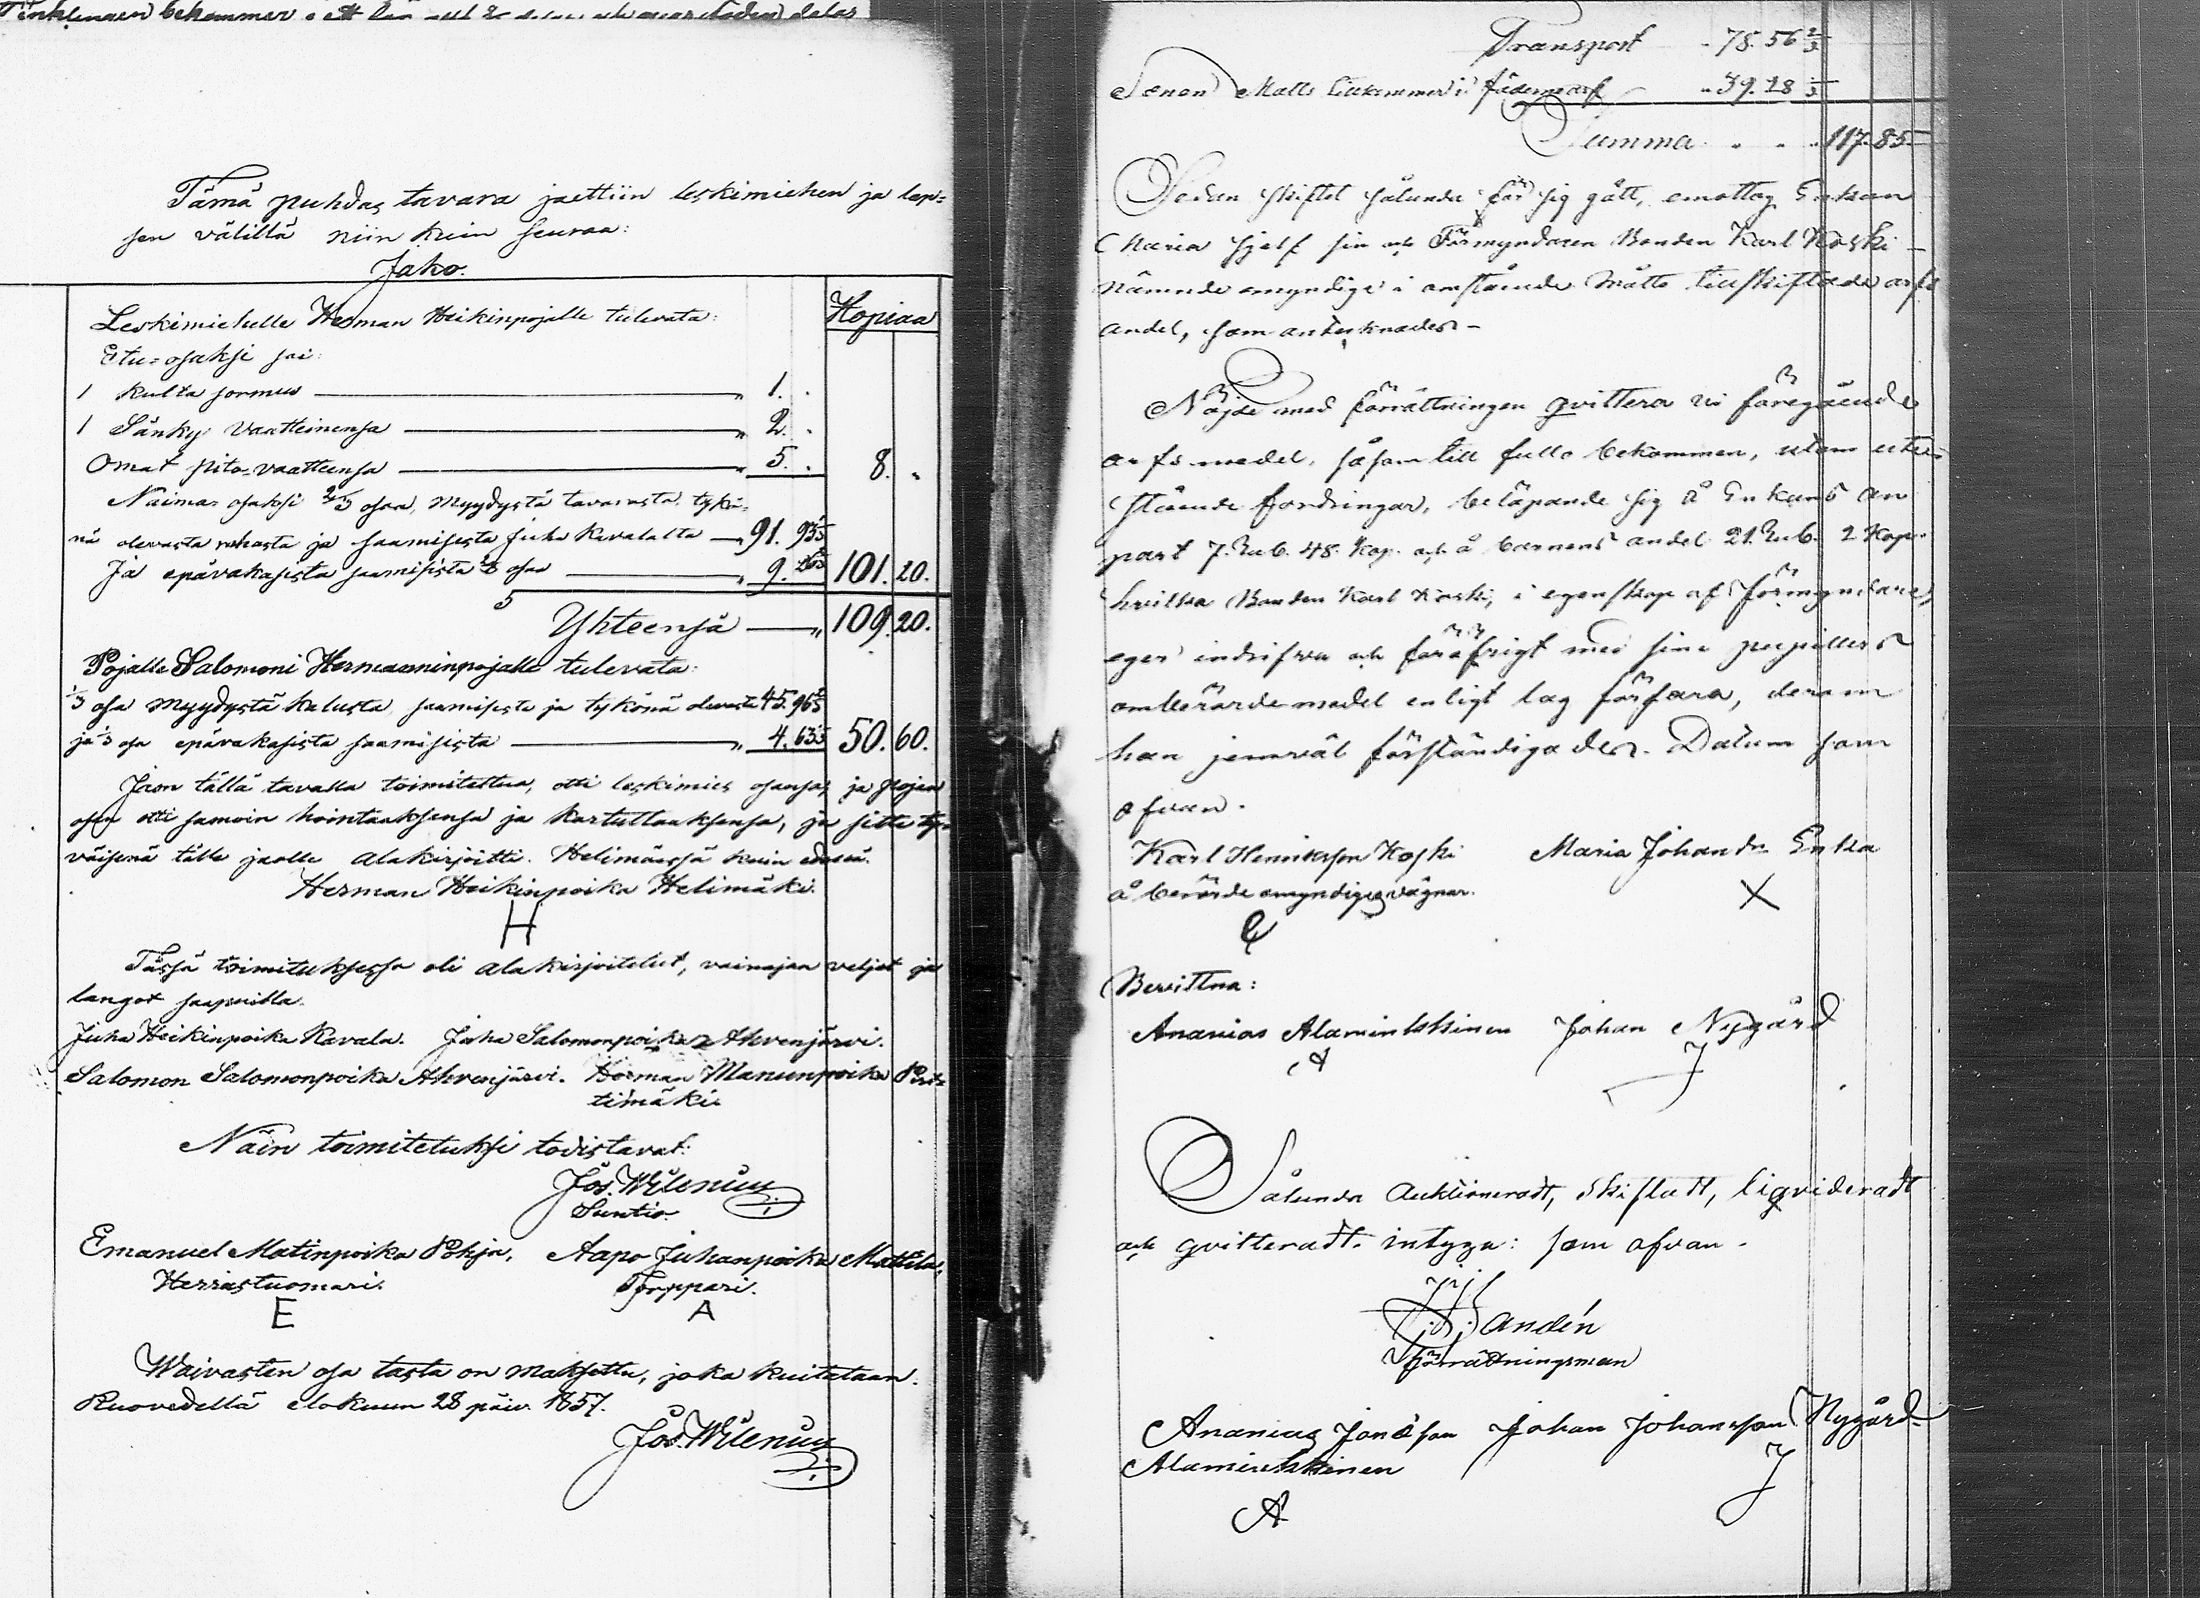 Enklingen bekommer i ett
Tämä puhdas tavara jaettiin leskimiehen ja lap-
sen välillä niin kuin seuraa:
Jako.
Leskimiehelle Herman Heikinpojalle tulevata: Hopiaa
Etu-osaksi sai:
1 kulta sormus — " 1. "
1 Sänky Vaatteinensa — " 2. "
Omat pito-vaatteensa — " 5. " 8. "
Naima-osaksi 2/3 osaa, myydystä tavarasta, tykö-
nä olevasta rahasta ja saamisesta Juha Kavalalta — 91. 93 1/3
Ja epävakasista saamisista 2/3 osaa — " 9. 26 2/3 101. 20.
Yhteensä — " 109. 20.
Pojalle Salomoni Hermanninpojalle tulevata:
1/3 osa myydystä kalusta, saamisesta ja tykönä olevasta 45. 96 2/3
ja 1/3 osa epävakasista saamisista — " 4. 63 1/3 50. 60.
Jaon tällä tavalla toimitettua, otti leskimies osansa, ja pojan
osan otti samoin hointaaksensa ja kartuttaaksensa, ja sitte
väisenä tälle jaolle alakirjoitti. Helimäessä kuin edessä.
Herman Heikinpoika Helimäki.
H
Tässä toimituksessa oli alakirjoitetut, vainajan veljet ja
langot saapuilla.
Juha Heikinpoika Kavala. Juha Salomonpoika Ahvenjärvi.
Salomon Salomonpoika Ahvenjärvi. Herman Manunpoika Pent-
timäki.
Näin toimitetuksi todistavat:
Jos. Wilenius
Suntio.
Emanuel Matinpoika Pohja, Aapo Juhanpoika Mattila,
Herrastuomari. Torppari.
E A
Waivasten osa tästä on maksettu, joka kuitataan.
Ruovedellä elokuun 28 päiv. 1857.
Jos. Wilenius
Transport " 78. 56 2/3
Sonen Matts tillkommer i fädernearf — " 39. 28 1/3
Summa " " " 117. 85
Sedan skiftet sålunda för sig gått, emottog Enkan
Maria sjelf sin och Förmyndaren Bonden Karl Koski
nämnde omyndige i omstående måtto tillskiftade arfs
andel, som antecknades —
Nöjde med förrättningen qvittera vi föregående
arfs medel, såsom till fullo bekommen, utom ute-
stående fordringar, belöpande sig å Enkans an
part 7. Rub. 48. Kop. och å barnens andel 21. Rub. 2 Kop.
hvilka Bonden Karl Koski, i egenskap af förmyndare,
eger indrifva och föröfrigt med sine pupillers
omberörde medel enligt lag förfara, derom
han jemväl förständigades. Datum som
ofvan.
Karl Henriksson Koski Maria Johans dr Enka
å berörde omyndiges vägnar. X
Bevittna:
Ananias Alaminkkinen Johan Nygård
A J
Sålunda Auktioneradt, skiftadt, liqvideradt
och qvitteradt. intyga: som ofvan.
Sandén
Förrättningsman
Ananias Jonasson Johan Johansson Nygård
Alaminkkinen J
A